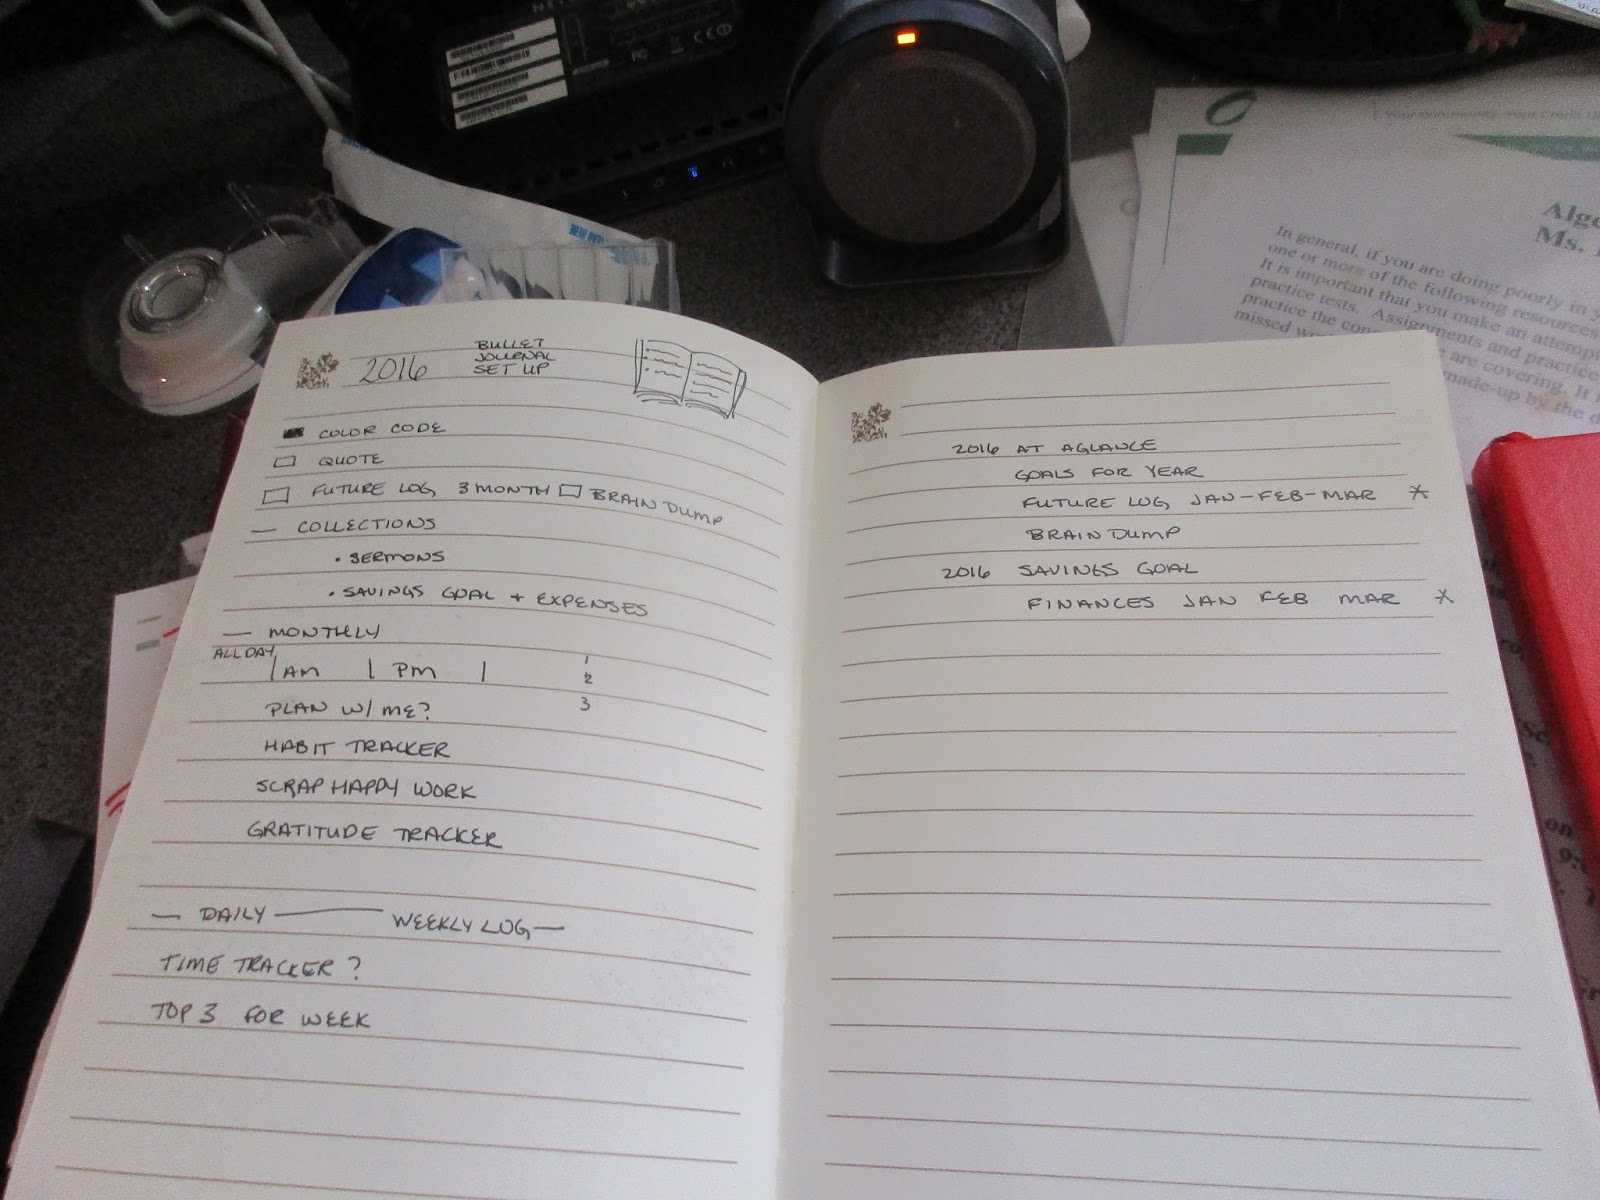 2016 BULLET
JOURNAL
SET UP
COLOR CODE
QUOTE
FUTURE LOG 3 MONTH BRAIN DUMP
— COLLECTIONS
• SERMONS
• SAVINGS GOAL + EXPENSES
— MONTHLY
ALL DAY | AM | PM | 1
2
PLAN W/ ME? 3
HABIT TRACKER
SCRAP HAPPY WORK
GRATITUDE TRACKER
— DAILY — WEEKLY LOG —
TIME TRACKER ?
TOP 3 FOR WEEK
2016 AT AGLANCE
GOALS FOR YEAR
FUTURE LOG JAN-FEB-MAR *
BRAIN DUMP
2016 SAVINGS GOAL
FINANCES JAN FEB MAR *
Your Community. Your Credit
Ms.
In general, if you are doing poorly in
one or more of the following resources
It is important that you make an attempt
practice tests. Assignments and practice
practice the are covering. It
missed made-up by the
on